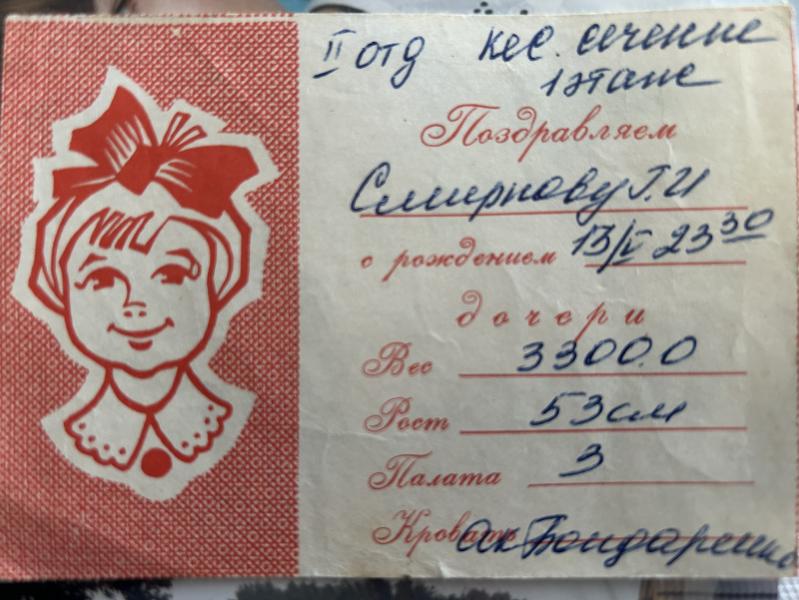 II отд кес. сечение
1 этаж
Поздравляем
Смирнову Г. И
с рождением 13/V 23 30
дочери
Вес 3300.0
Рост 53 см
Палата 3
Кровать Ак Бондаренко